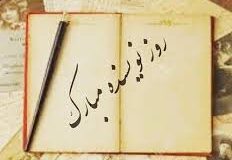 روز نویسنده مبارک